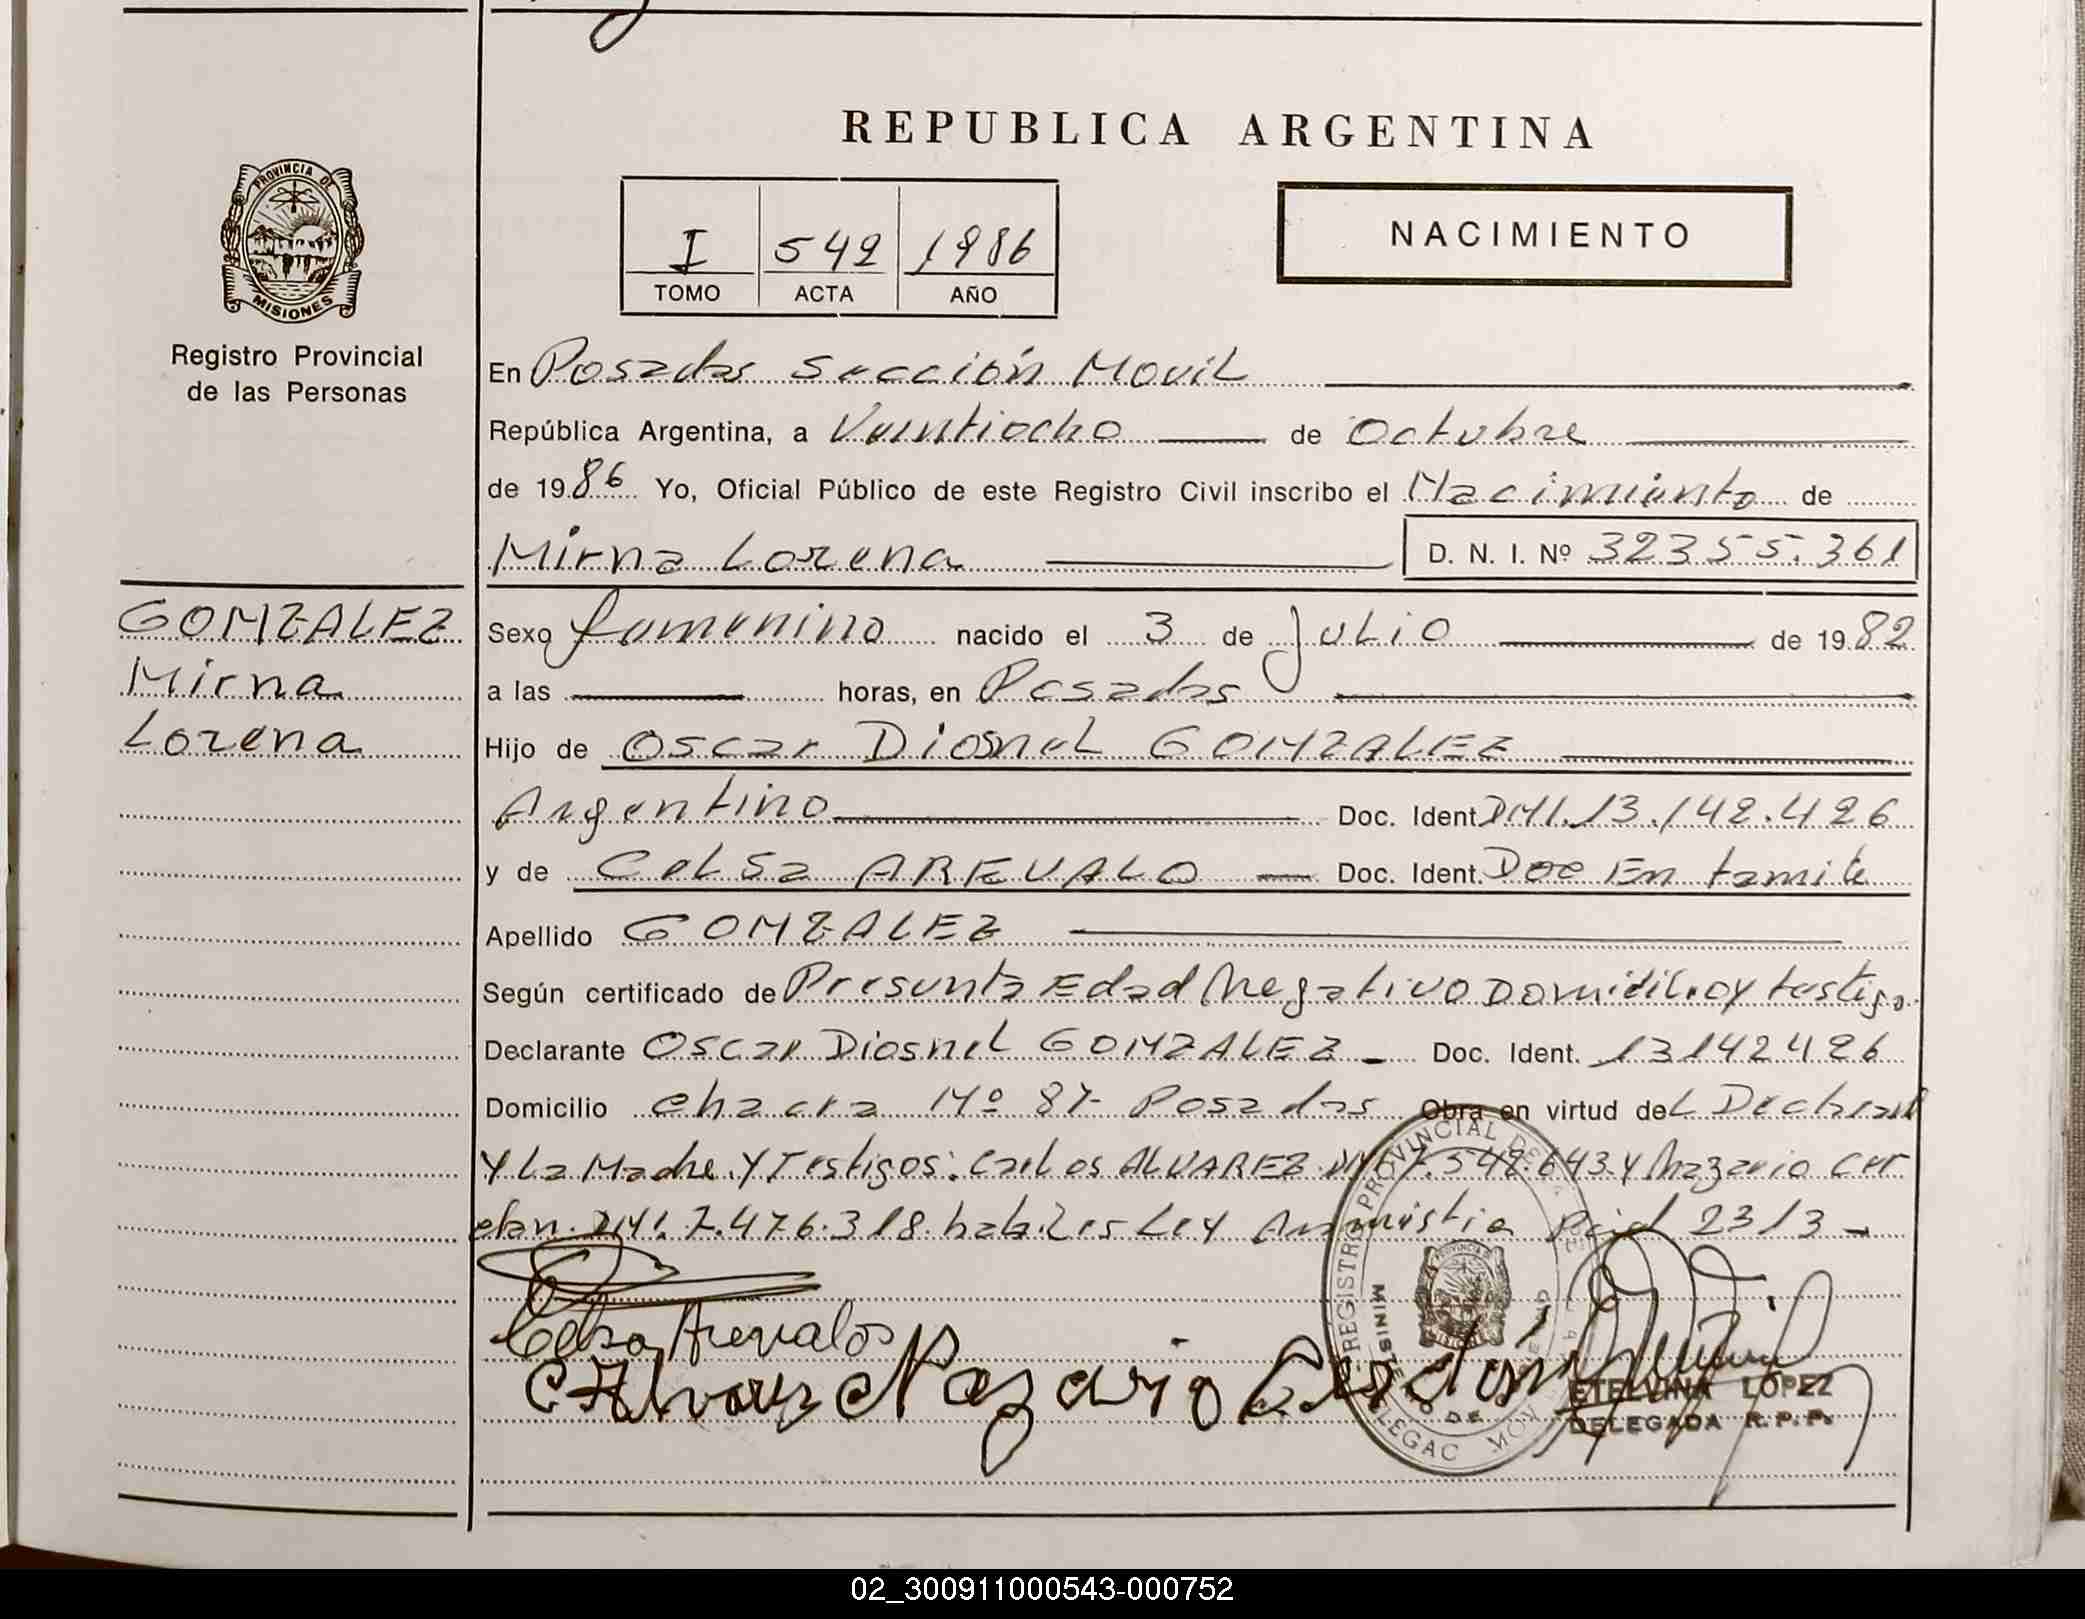 REPUBLICA ARGENTINA
PROVINCIA DE
MISIONES
Registro Provincial
de las Personas
I 542 1986
TOMO ACTA AÑO
NACIMIENTO
En Posadas Sección Movil
República Argentina, a Veintiocho de Octubre
de 1986 Yo, Oficial Público de este Registro Civil inscribo el Nacimiento de
Mirna Lorena D. N. I. Nº 32355.361
GONZALEZ
Mirna
Lorena
Sexo femenino nacido el 3 de Julio de 1982
a las horas, en Posadas
Hijo de Oscar Diosnel GONZALEZ
Argentino Doc. Ident. DNI.13.142.426
y de Celsa AREVALO Doc. Ident. Doc En tramite
Apellido GONZALEZ
Según certificado de Presunta Edad Negativo Domicilio y testigo
Declarante Oscar Diosnel GONZALEZ Doc. Ident. 13142426
Domicilio chacra Nº 87- Posadas Obra en virtud del Declarant
Y La Madre Y Testigos: Carlos ALVAREZ DNI 7.548.643 Y Nazario Cer
dan. DNI. 7.476.318. habiles Ley Amnistia 2313-
Celsa Arevalos
C Alvarez Nazario Cerdán
REGISTRO PROVINCIAL DE
ETELVINA LOPEZ
DELEGADA R.P.P.
02_300911000543-000752